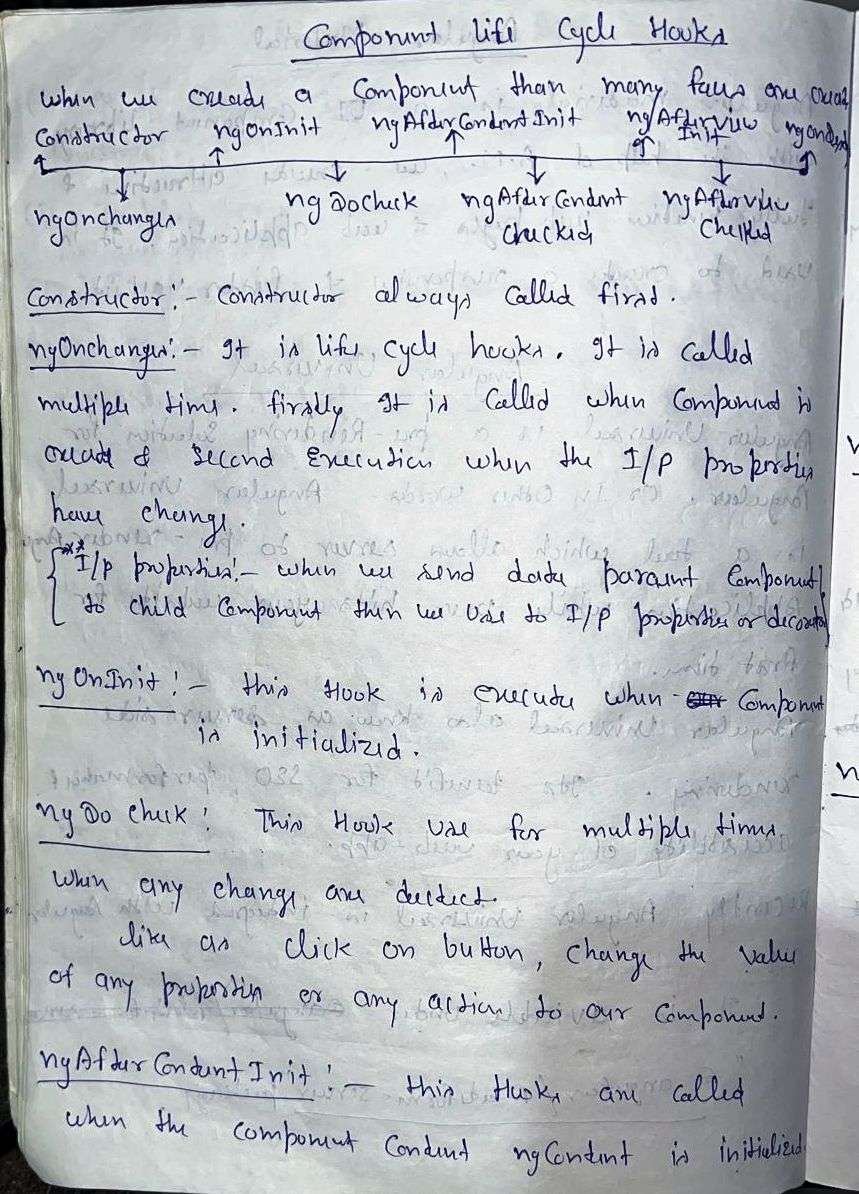 Component life Cycle Hooks
when we create a Component than many faus are creat
Constructor ngOnInit ngAfterContentInit ngAfterview Init ngondest
ngOnchanges ngDoCheck ngAfterContent Checked ngAfterview Checked
Constructor:- Constructor always Called first.
ngOnchanges:- It is life cycle hooks. It is called
multiple time. firstly It is Called when Component is
create & Second Execution when the I/P properties
have change.
** I/P properties:- when we send data paraent Component
to child Component then we use to I/P properties or decorator
ngOnInit:- this Hook is execute when Component
is initialized.
ngDo Check: This Hook use for multiple times
when any change are dectect.
like as click on button, change the value
of any properties or any action to our Component.
ngAfterContentInit:- this Hooks are called
when the component Content ngContent is initialized